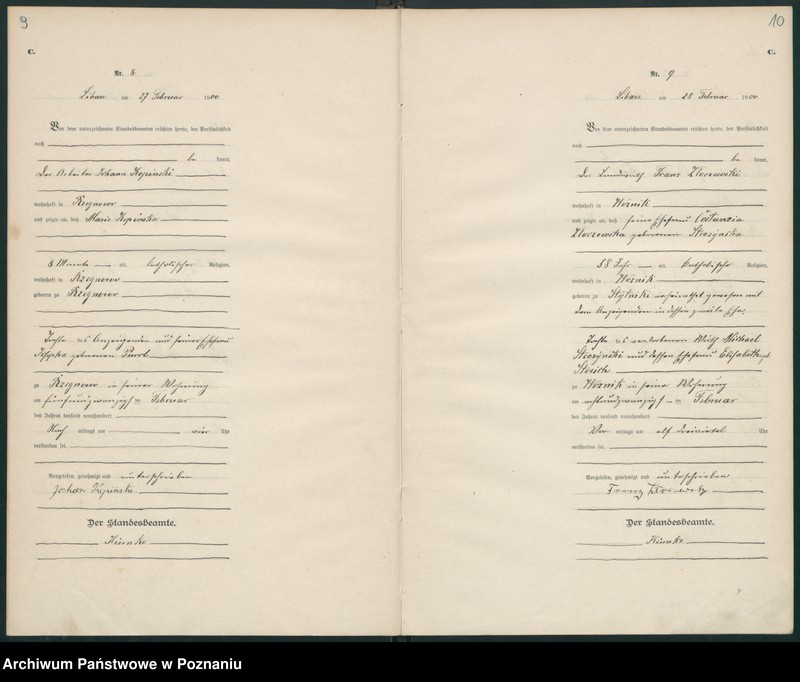 9
C.
Nr. 8.
Libau am 27 Februar 1900
Vor dem unterzeichneten Standesbeamten erschien heute, der Persönlichkeit
nach
be kannt,
Der Arbeiter Johann
wohnhaft in
und zeigte an, daß Marie
8 Monate alt, katholischer Religion,
wohnhaft in
geboren zu
Tochter des Anzeigenden und seiner Ehefrau
geborenen
zu in seiner Wohnung
am fünfundzwanzigsten Februar
des Jahres tausend neunhundert
Nach mittags um vier Uhr
verstorben sei.
Vorgelesen, genehmigt und unterschrieben
Johan
Der Standesbeamte.
10
C.
Nr. 9
Libau am 28 Februar 1900
Vor dem unterzeichneten Standesbeamten erschien heute, der Persönlichkeit
nach
be kannt,
Der Landwirth Franz
wohnhaft in Woznik
und zeigte an, daß seine Ehefrau
geborenen
58 Jahr alt, katholische Religion,
wohnhaft in Woznik
geboren zu verheirathet gewesen mit
dem Anzeigenden in dessen zweite Ehe,
Tochter des verstorbenen Wirth Michael
und dessen Ehefrau Elisabeth geb
zu Woznik in seine Wohnung
am achtundzwanzigsten Februar
des Jahres tausend neunhundert
Vor mittags um elf dreiviertel Uhr
verstorben sei.
Vorgelesen, genehmigt und unterschrieben
Franz
Der Standesbeamte.
Archiwum Państwowe w Poznaniu